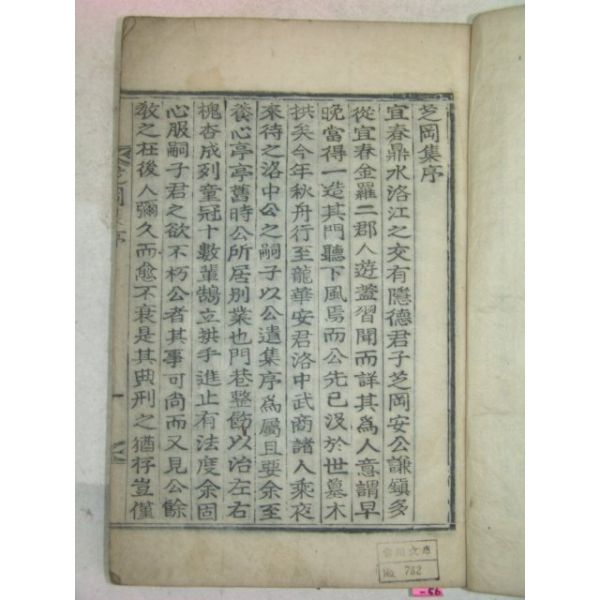 芝岡集序
宜春鼎水洛江之交有隱德君子芝岡安公謙鎭多
從宜春金羅二郡人遊盖習聞而詳其爲人意謂早
晩當得一造其門聽下風焉而公先已沒於世墓木
拱矣今年秋舟行至龍華安君洛中武商諸人乘夜
來待之洛中公之嗣子以公遺集序爲屬且要余至
養心亭亭舊時公所居別業也門巷整飭以治左右
槐杏成列童冠十數輩鵠立拱手進止有法度余固
心服嗣子君之欲不朽公者其事可尙而又見公餘
敎之在後人彌久而愈不衰是其典刑之猶存豈僅
序
一
文庫
No. 732
-56